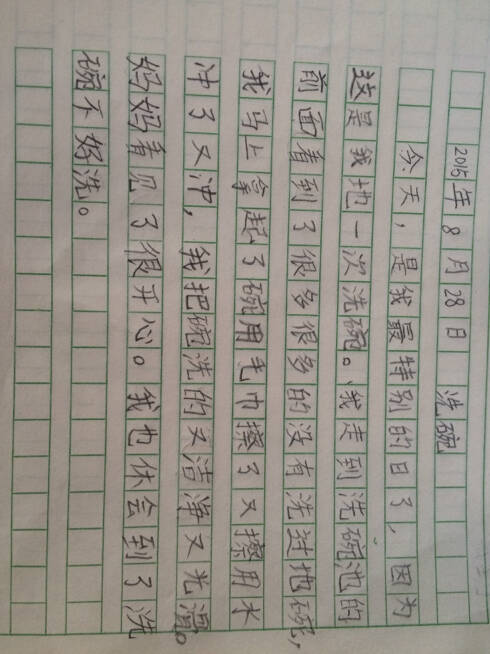 2015年8月28日
洗碗
今天，是我最特别的日了，因为
这是我地一次洗碗。我走到洗碗池的
前面看到了很多很多的没有洗过地碗，
我马上拿起了碗用毛巾擦了又擦用水
冲了又冲，我把碗洗的又洁净又光滑。
妈妈看见了很开心。我也休会到了洗
碗不好洗。